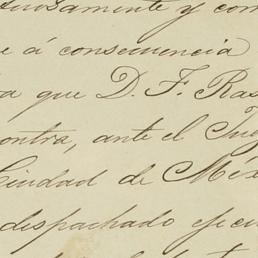 y com
e á consecuencia
a que D. F. Ras
contra, ante el Juz
Ciudad de Méx
despachado ejecu